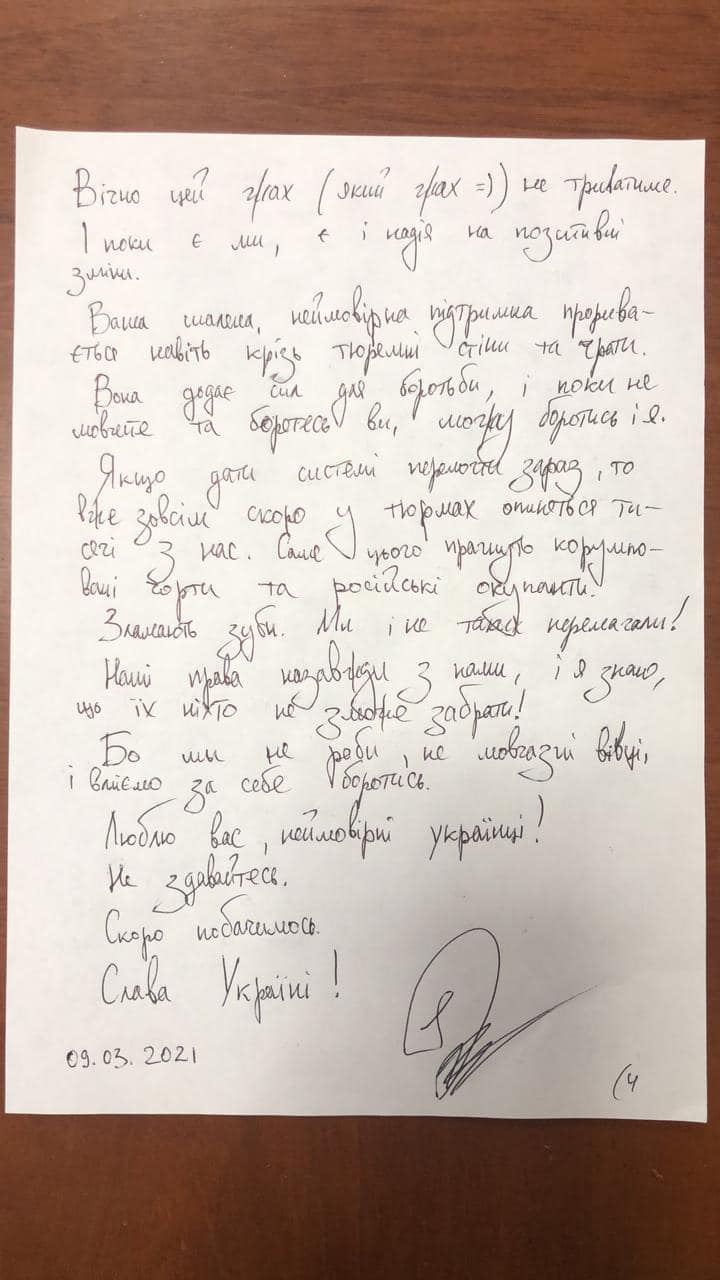 Вічно цей жах (який жах =)) не триватиме.
І поки є ми, є і надія на позитивні
зміни.
Ваша шалена, неймовірна підтримка прорива-
ється навіть крізь тюремні стіни та ґрати.
Вона додає сил для боротьби, і поки не
мовчите та боретесь ви, можу боротись і я.
Якщо дати системі перемогти зараз, то
вже зовсім скоро у тюрмах опиняться ти-
сячі з нас. Саме цього прагнуть корумпо-
вані чорти та російські окупанти.
Зламають зуби. Ми і не таких перемагали!
Наші права назавжди з нами, і я знаю,
що їх ніхто не зможе забрати!
Бо ми не раби, не мовчазні вівці,
і вміємо за себе боротись.
Люблю вас, неймовірні українці!
Не здавайтесь.
Скоро побачимось.
Слава Україні!
09.03.2021
(4